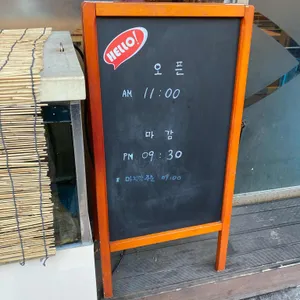 HELLO!
오픈
AM 11:00
마감
PM 09:30